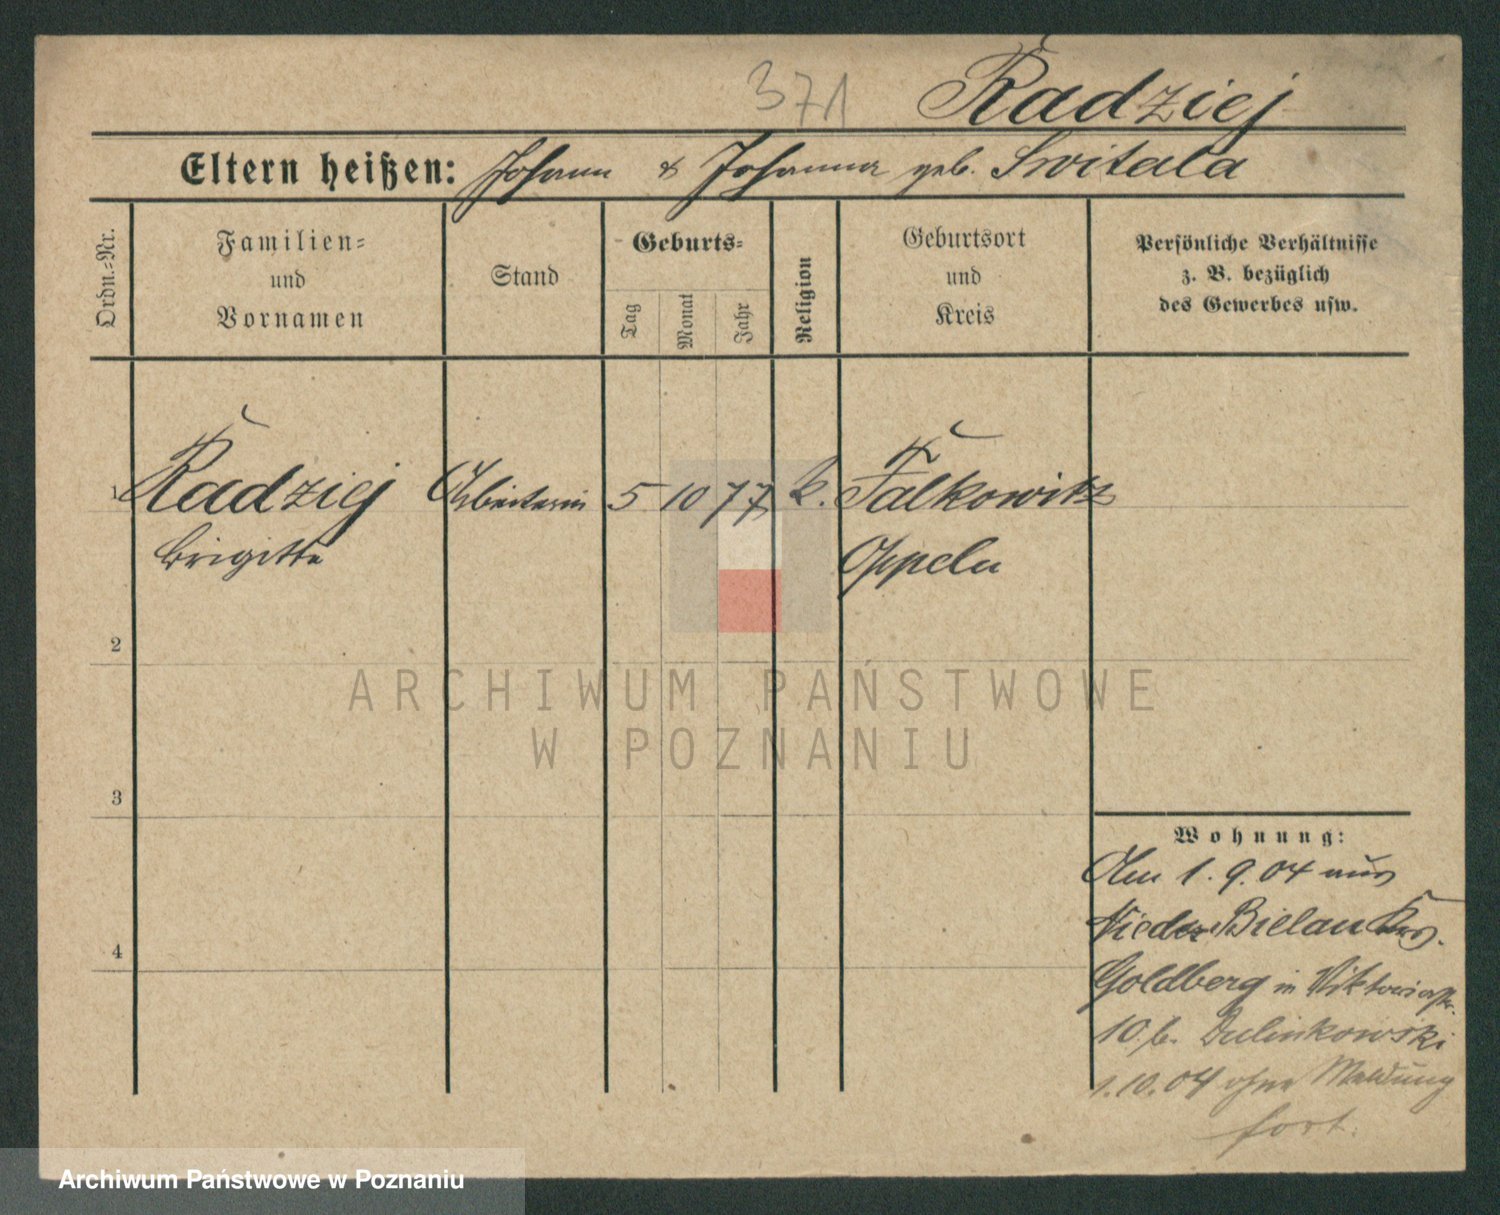 371 Radziej
Eltern heißen: Johann & Johanna geb. Switala
Ordn.-Nr.
Familien-
und
Vornamen
Stand
Geburts-
Tag
Monat
Jahr
Religion
Geburtsort
und
Kreis
Persönliche Verhältnisse
z. B. bezüglich
des Gewerbes usw.
1 Radziej Arbeiterin 5 10 77 k. Falkowitz
Brigitte Oppeln
2
3
4
Wohnung:
Am 1. 9. 04 aus
Nieder Bielau Krs.
Goldberg in Viktoriastr.
10 b. Dulinkowski
1.10.04 ohne Meldung
fort.
ARCHIWUM PAŃSTWOWE
W POZNANIU
Archiwum Państwowe w Poznaniu